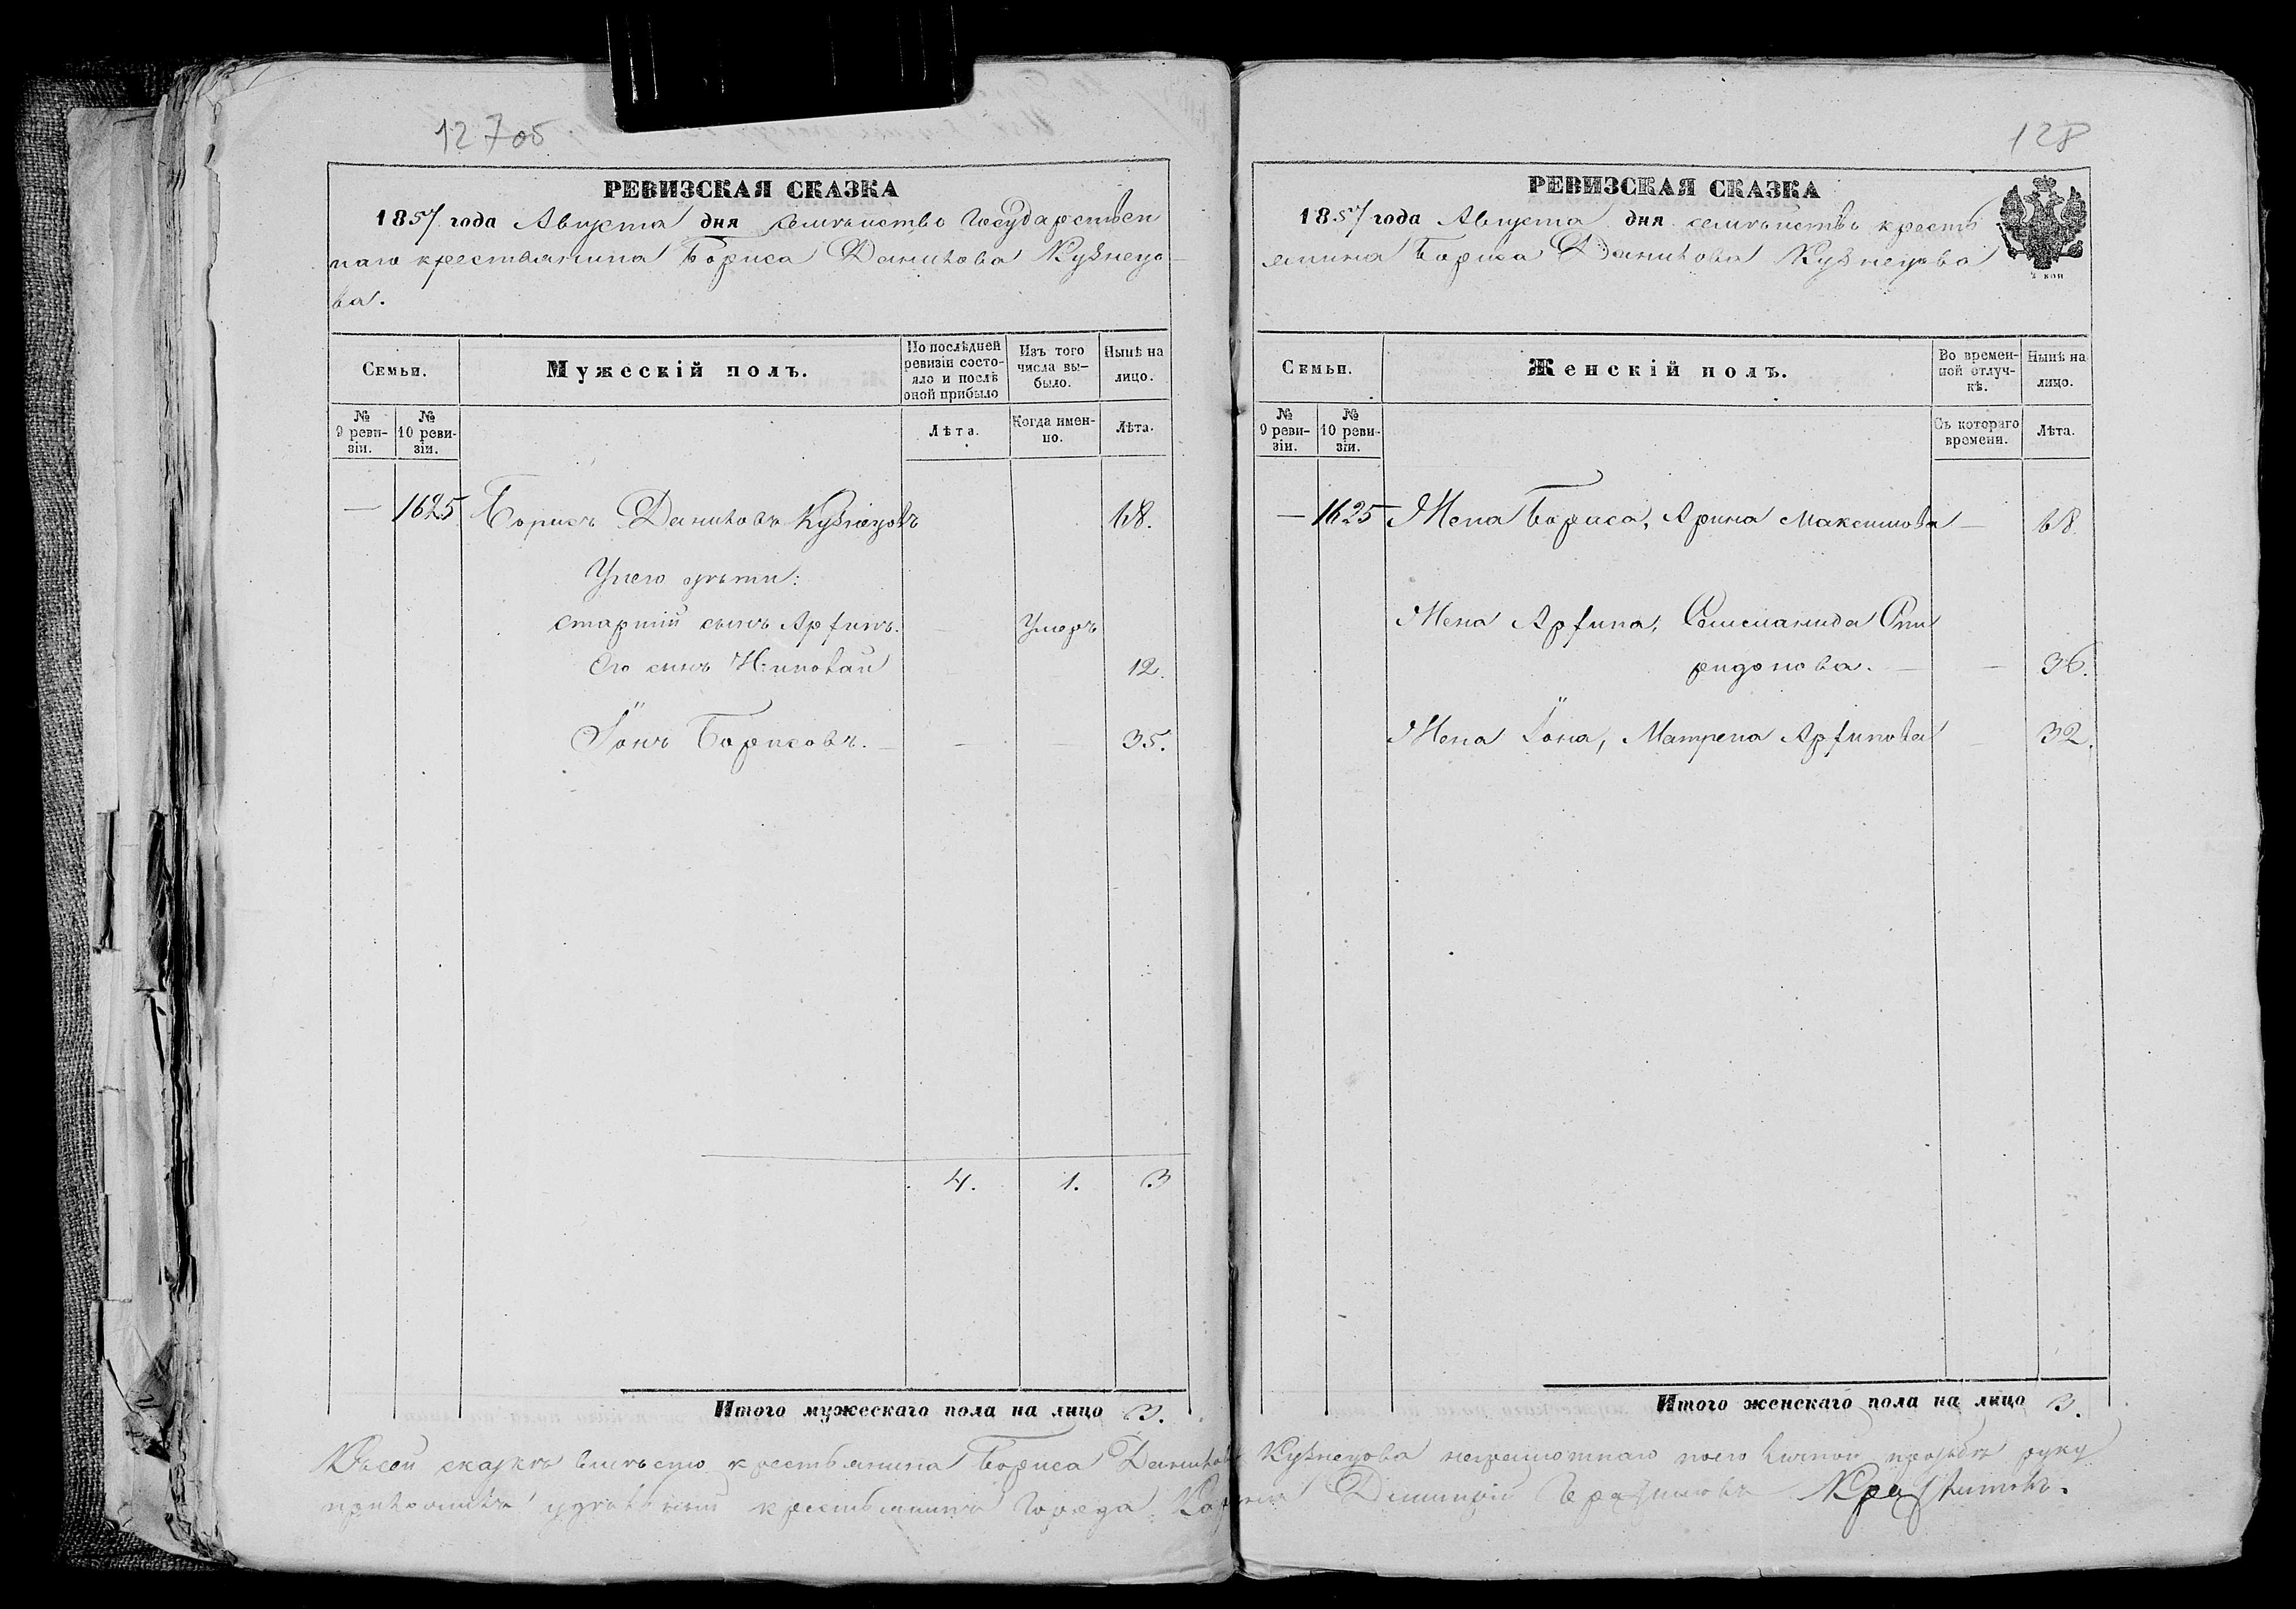 12705
РЕВИЗСКАЯ СКАЗКА
1857 года Августа дня семѣйство Государствен
наго крестьянина Бориса Данилова Кузнецо
ва.
Семьи.
Мужескій полъ.
По послѣдней ревизіи состояло и послѣ оной прибыло
Изъ того числа выбыло.
Нынѣ на лицо.
№ 9 ревизіи.
№ 10 ревизіи.
Лѣта.
Когда именно.
Лѣта.
— 1625 Борисъ Даниловъ Кузнецовъ 68.
У него дѣти:
старшій сынъ Арфинъ. Умеръ
Его сынъ 12.
Іонъ Борисовъ. — — — 35.
4. 1. 3
Итого мужескаго пола на лицо 3.
128
РЕВИЗСКАЯ СКАЗКА
1857 года Августа дня семѣйствѣ кресть
янина Бориса Данилова Кузнецова
2 коп
Семьи.
Женскій полъ.
Во временной отлучкѣ.
Нынѣ на лицо.
№ 9 ревизіи.
№ 10 ревизіи.
Съ котораго времени.
Лѣта.
— 1625 Жена Бориса, Арина Максимова — 68.
Жена Арфина, Спи
ридонова. — — 36.
Жена Іона, Матрена Арфинова — 32.
Итого женскаго пола на лицо 3.
Къ сей сказкѣ вмѣсто крестьянина Бориса Данилова Кузнецова неграмотнаго по его личной прозьбѣ руку
приложилъ удѣльный крестьянинъ города